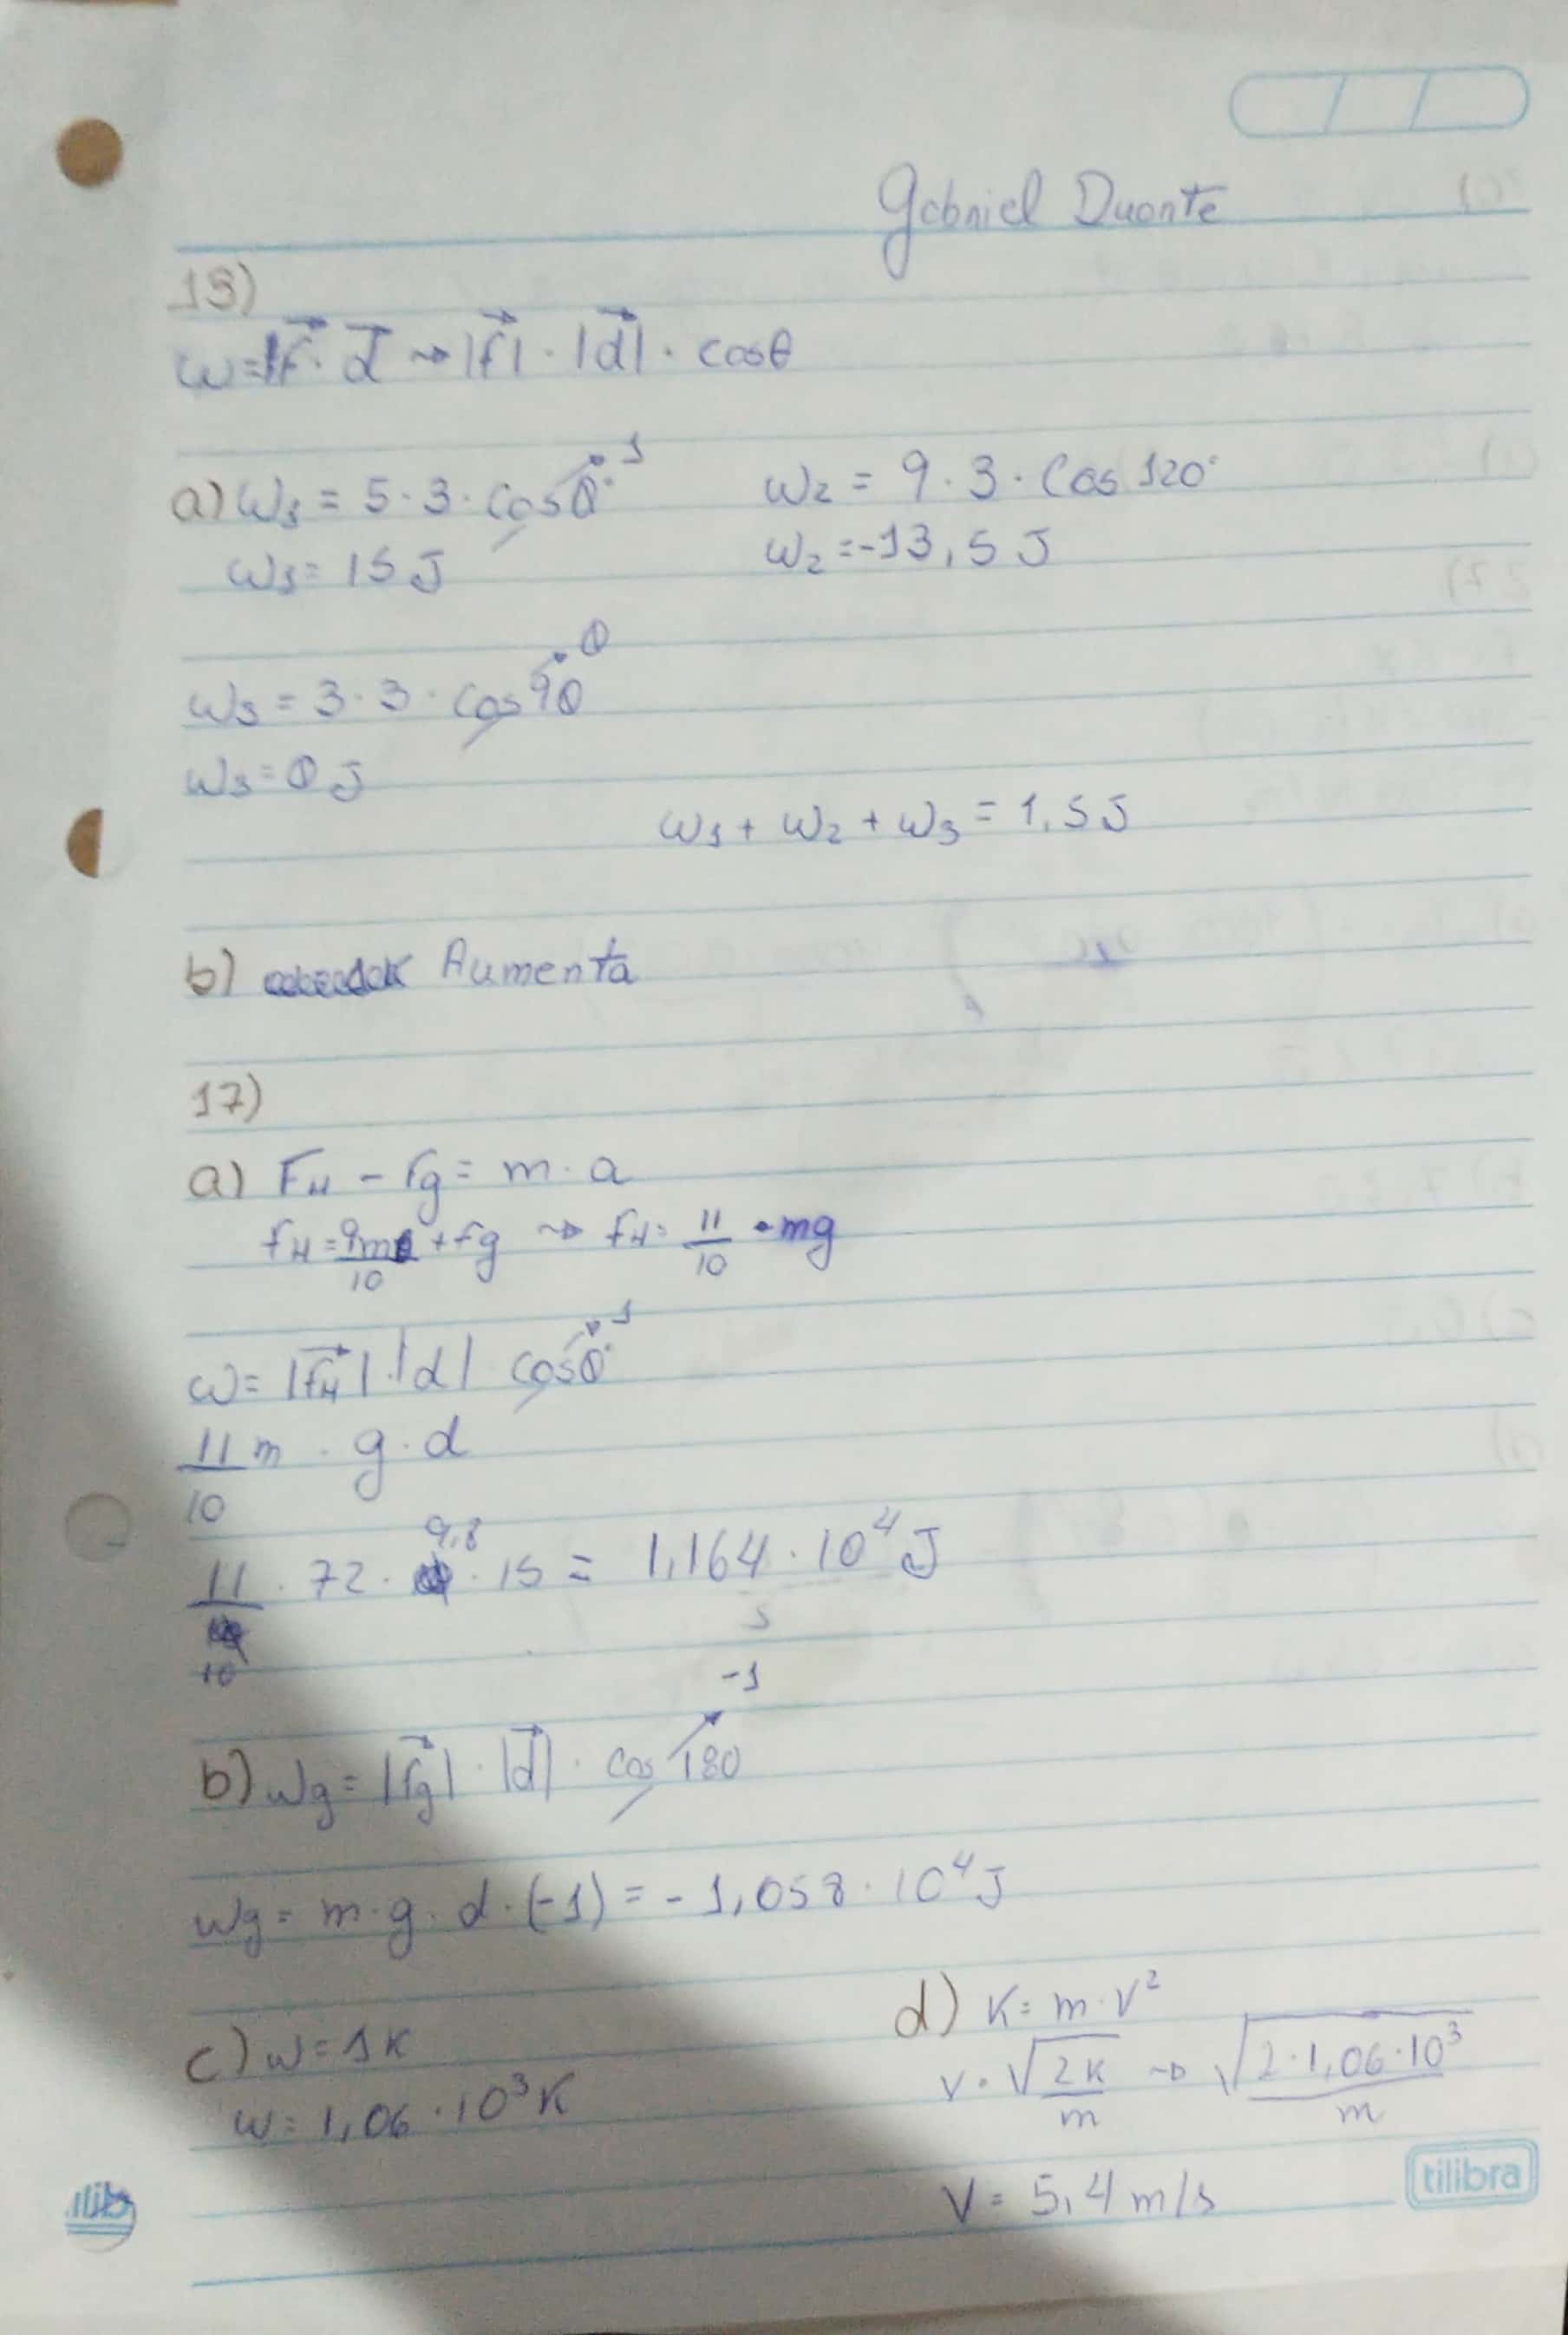 Gabriel Duarte
13)
W = F⃗ · d⃗ → |F⃗| · |d⃗| · cosθ
a) W1 = 5 · 3 · cos0° 1
W2 = 9 · 3 · Cos 120°
W1 = 15 J
W2 = -13,5 J
W3 = 3 · 3 · cos90 0
W3 = 0 J
W1 + W2 + W3 = 1,5 J
b) Aumenta
17)
a) FH - Fg = m · a
FH = + Fg → FH = 11/10 · mg
W = |F⃗H| · |d| cos0° 1
11/10 m · g · d
11/10 · 72 · 9,8 · 15 = 1,164 · 10⁴ J
b) Wg = |F⃗g| · |d⃗| · cos 180 -1
Wg = m · g · d · (-1) = - 1,058 · 10⁴ J
c) W = 1K
W = 1,06 · 10³ K
d) K = m · V²
V = √(2K/m) → √(2 · 1,06 · 10³/m)
V = 5,4 m/s
tilibra